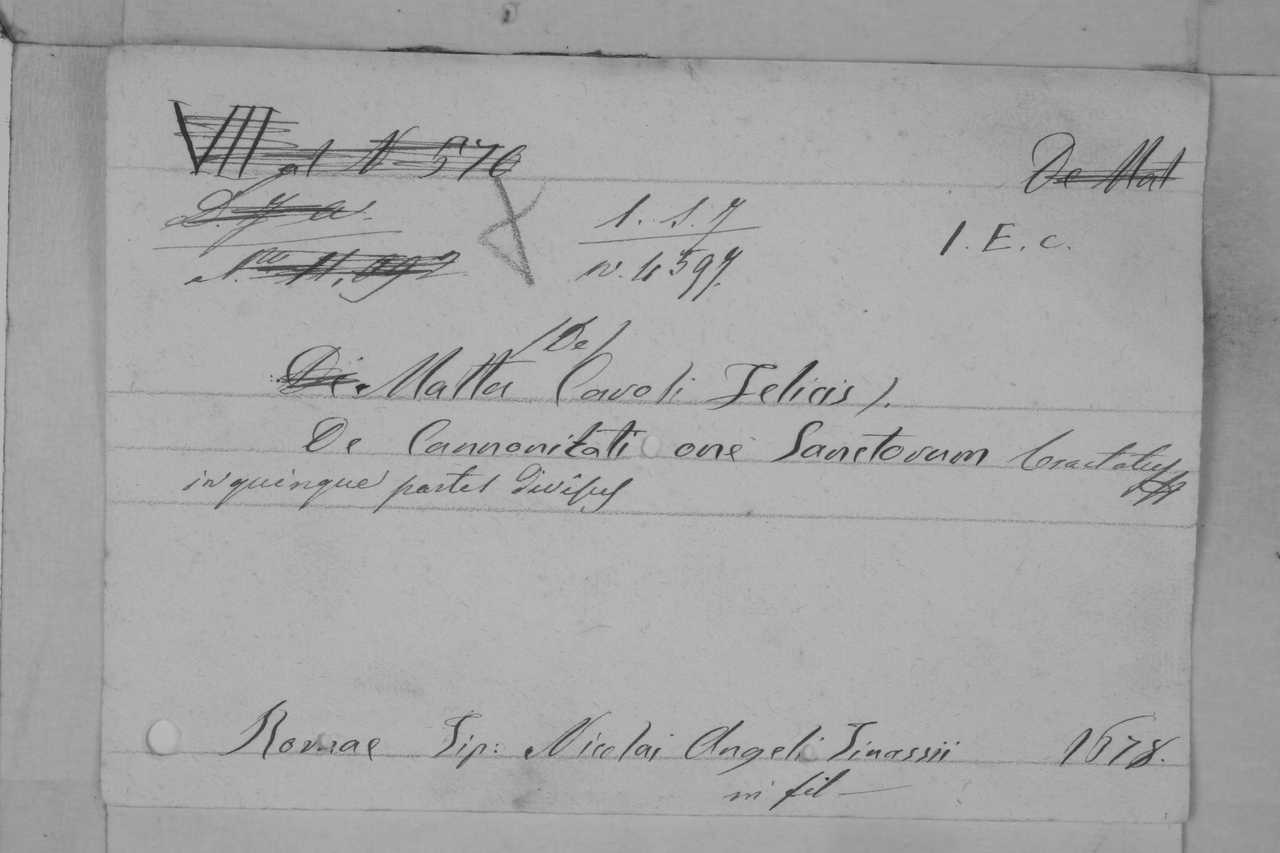 VIII al N 576
De Mat
D. y a.
1. S. 7
1. E. c.
No 11,092
n. 4597.
(De)
De Matta Cavoli Felicis).
De Cannonizati one Sanctorum tractatus
in quinque partes divisus
Romae Tip: Nicolai Angeli Tinassii 1678.
in fol